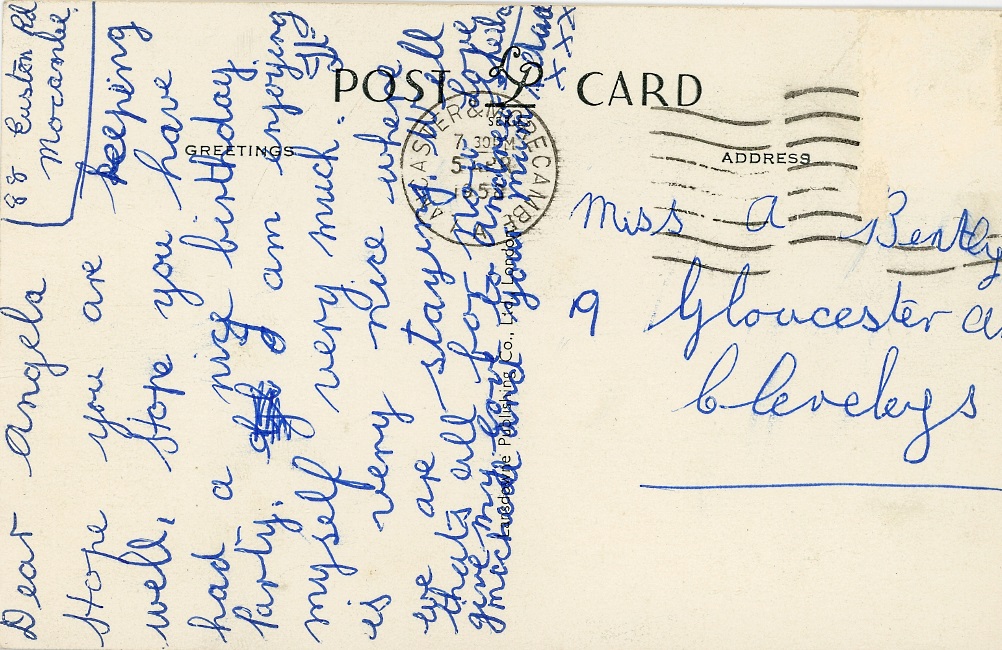 88 Euston Rd
Morcambe
Dear Angela
Hope you are keeping
well, Hope you have
had a nice birthday
Party. I am enjoying
myself very much. It
is very nice where
we are staying well
thats all for now love
give my love to
mother and your
xxxx
POST CARD
GREETINGS
ADDRESS
SERIES
LANCASTER & MORECAMBE
7 30PM
195
Lansdowne Publishing Co., Ltd., London
Miss A Bentley
9 Gloucester
Cleveleys